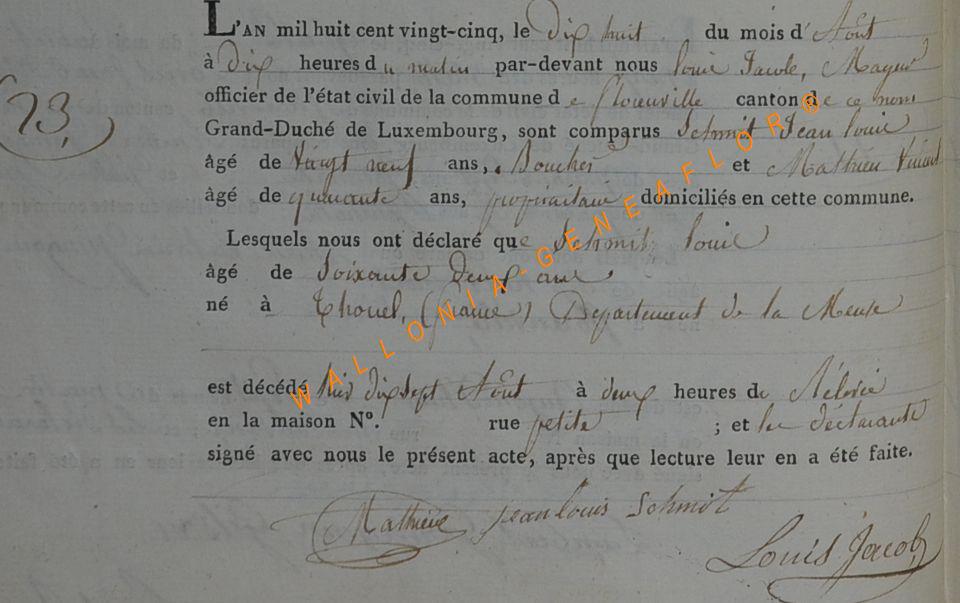 73.
L'AN mil huit cent vingt-cinq, le Dix huit du mois d'Aout
à Dix heures du matin par-devant nous Louis Jacob, Mayeur
officier de l'état civil de la commune de florenville canton de ce nom
Grand-Duché de Luxembourg, sont comparus Schmit Jean louis
âgé de Vingt neuf ans, Boucher et Mathieu
âgé de quarante ans, propriétaire domiciliés en cette commune.
Lesquels nous ont déclaré que Schmit louis
âgé de Soixante deux ans
né à Thonel, (france) Département de la Meuse
est décédé hier dix sept Aout à deux heures de
en la maison N°. rue petite ; et les déclarants
signé avec nous le présent acte, après que lecture leur en a été faite.
Mathieu Jean louis Schmit
Louis Jacob
WALLONIA-GENEAFLOR®